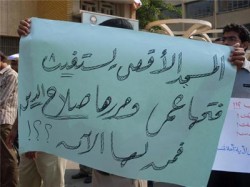 المسجد الأقصى يستغيث
فتحها عمر وحررها صلاح الدين
فمن لها الآن ؟؟!